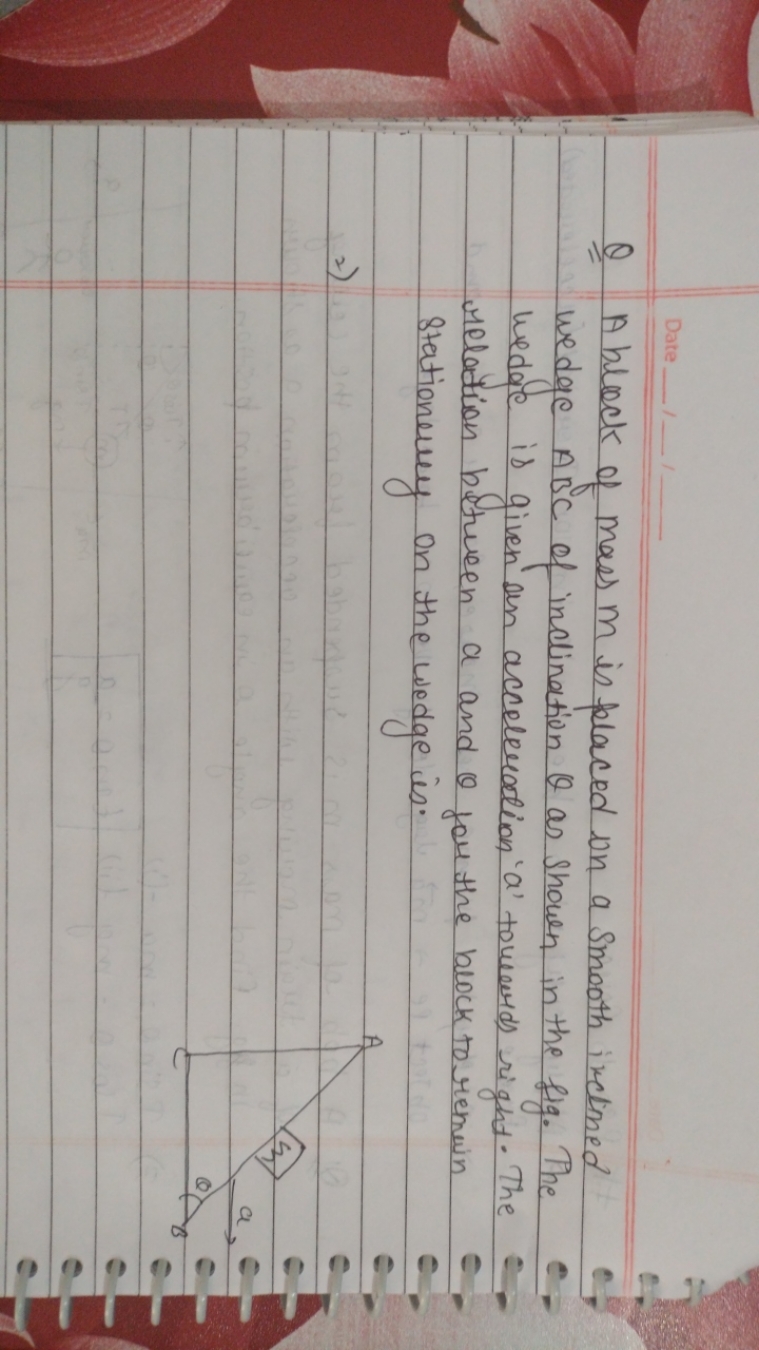 Date __/__/__
Q A block of mass m is placed on a smooth inclined
wedge ABC of inclination θ as shown in the fig. The
wedge is given an acceleration 'a' towards right. The
relation between a and θ for the block to remain
stationary on the wedge is.
2)
A
m
a
θ
C
B